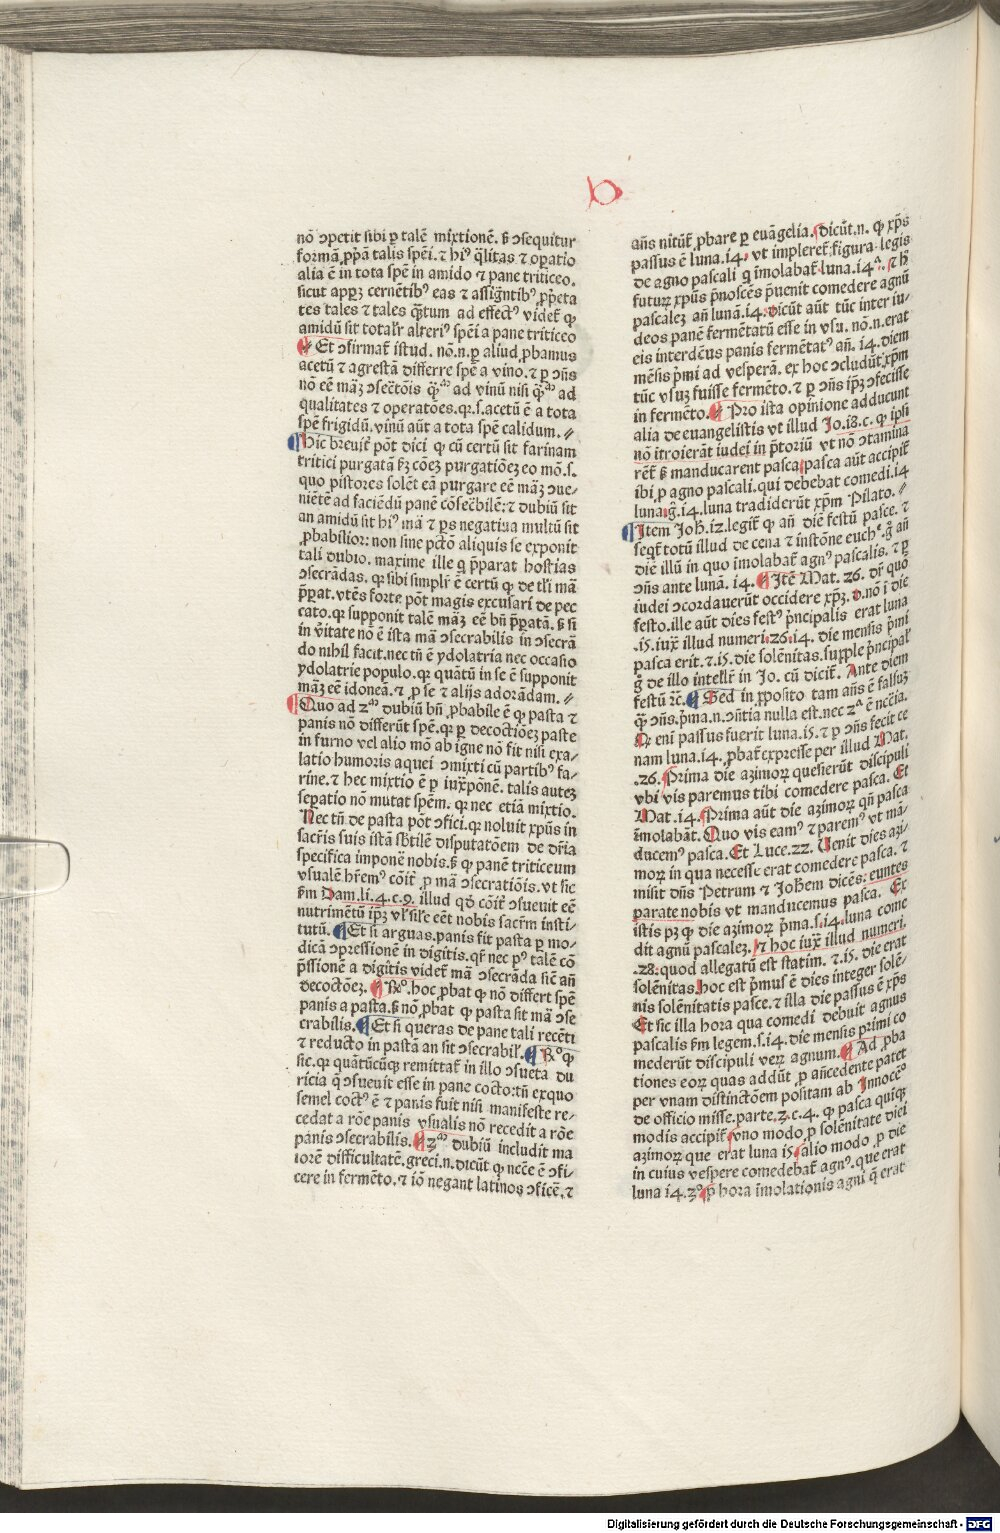 b
nō ꝯpetit sibi ꝑ talē mixtionē. sꝫ ꝯsequitur
formā ꝓpꝛiā talis spēi. ⁊ hiꝰ q̄litas ⁊ opatio
alia ē in tota spē in amido ⁊ pane triticeo.
sicut appꝫ cernētibꝰ eas ⁊ assigntibꝰ ꝓpꝛieta
tes tales ⁊ tales q̄tum ad effectꝰ videt̄ ꝙ
amidū sit total'r alteriꝰ spēi a pane triticeo
Et ꝯfirmat̄ istud. nō.n.ꝑ aliud ꝓbamus
acetū ⁊ agrestā differre spē a vino. ⁊ ꝑ ꝯn̄s
nō eē māꝫ ꝯsectōis q̄ꝫ ad vinū nisi q̄ꝫ ad
qualitates ⁊ operatōes. qꝛ.s.acetū ē a tota
spē frigidū. vinū aūt a tota spē calidum.
Hic breuit̄ pōt dici ꝙ cū certū sit farinam
tritici purgatā sꝫ cōeꝫ purgatiōeꝫ eo mō.s.
quo pistores solēt eā purgare eē māꝫ ꝯue-
niētē ad faciēdū panē cōsecbilē: ⁊ dubiū sit
an amidū sit hiꝰ mā ⁊ ps negatiua multū sit
ꝓbabilior: non sine pctō aliquis se exponit
tali dubio. maxime ille q̄ p̄parat hostias
ꝯsecrādas. qꝛ sibi simpl'r ē certū ꝙ de tl'i mā
p̄parat. vtēs forte pōt magis excusari de pec
cato. qꝛ supponit talē māꝫ eē bn̄ p̄paratā. sꝫ si
in v̄itate nō ē ista mā ꝯsecrabilis in ꝯsecrā
do nihil facit. nec tn̄ ē ydolatria nec occasio
ydolatrie populo. qꝛ quātū in se ē supponit
māꝫ eē idoneā. ⁊ ꝓ se ⁊ alijs adorādam.
Quo ad 2ꝫ dubiū bn̄ ꝓbabile ē ꝙ pasta ⁊
panis nō differūt spē. qꝛ ꝑ decoctiōeꝫ paste
in furno vel alio mō ab igne nō fit nisi exa-
latio humoris aquei ꝯmixti cū partibꝰ fa-
rine. ⁊ hec mixtio ē ꝑ iuxp̄onē. talis auteꝫ
seꝑatio nō mutat spēm. qꝛ nec etiā mixtio.
Nec tn̄ de pasta pōt ꝯfici. qꝛ noluit xp̄us in
sacr̄is suis istā sbtilē disputatōem de dr̄ia
specifica imponē nobis. sꝫ ꝙ panē triticeum
vsualē hr̄emꝰ cōit̄ ꝓ mā ꝯsecratiōis. vt sic
sm̄ Dam.li.4.c.9. illud qd̄ cōit̄ ꝯsueuit eē
nutrimētū ipꝫ vl' sil'e eēt nobis sacr̄m insti-
tutū. Et si arguas. panis fit pasta ꝑ mo-
dicā ꝯpressionē in digitis. qr̄ nec pꝰ talē cō
p̄ssionē a digitis videt̄ mā ꝯsecrāda sic̄ an̄
decoctōeꝫ. ℞º. hoc ꝓbat ꝙ nō differt spē
panis a pasta. sꝫ nō ꝓbat ꝙ pasta sit mā ꝯse
crabilis. Et si queras de pane tali recēti
⁊ reducto in pastā an sit ꝯsecrabil'. ℞º ꝙ
sic. qꝛ quātūcūqꝫ remittat̄ in illo ꝯsueta du
ricia q̄ ꝯsueuit esse in pane cocto: tn̄ exquo
semel coctꝰ ē ⁊ panis fuit nisi manifeste re-
cedat a rōe panis vsualis nō recedit a rōe
panis ꝯsecrabilis. 2ꝫ dubiū includit ma
iorē difficultatē. greci.n.dicūt ꝙ ncc̄e ē ꝯfi-
cere in fermēto. ⁊ iō negant latinos ꝯficē. ⁊
an̄s nitūt̄ ꝓbare ꝑ euāgelia. Dicūt.n. ꝙ xp̄s
passus ē luna.i4. vt impleret̄ figura legis
de agno pascali q̄ īmolabat̄ luna.i4ª. ⁊ h̄
futuꝝ xp̄us p̄noscēs p̄uenit comedere agnū
pascaleꝫ an̄ lunā.i4. dicūt aūt tūc inter iu-
deos panē fermētatū esse in vsu. nō.n.erat
eis interdcūs panis fermētatꝰ an̄. i4.diem
mēsis p̄mi ad vesperā. ex hoc ꝯcludūt xp̄m
tūc vsuꝫ fuisse fermēto. ⁊ ꝑ ꝯn̄s ipꝫ ꝯfecisse
in fermēto. Pro ista opinione adducunt
alia de euangelistis vt illud Jo.i8.c. ꝙ ipsi
nō itroierāt iudei in p̄toriū vt nō ꝯtamina
rēt̄ sꝫ manducarent pasca. pasca aūt accipit̄
ibi ꝓ agno pascali. qui debebat comedi.i4
luna. g̊.i4.luna tradiderūt xp̄m Pilato.
Item Joh̄.i2.legit̄ ꝙ an̄ diē festū pasce. ⁊
seqt̄ totū illud de cena ⁊ instōne euch̄ᵉ. g̊ an̄
diē illū in quo īmolabat̄ agnꝰ pascalis. ⁊ ꝑ
ꝯn̄s ante lunā. i4. Itē Mat. 26. dr̄ quō
iudei ꝯcordauerūt occidere xp̄ꝫ. d.nō ī die
festo. ille aūt dies festꝰ p̄ncipalis erat luna
.i5. iux̄ illud numeri. 26. i4. die mensis p̄mi
pasca erit. ⁊.i5. die solēnitas. suxple p̄ncipal'
g̊ de illo intell'r in Jo. cū dicit̄. Ante diem
festū ⁊c̄. Sed in ꝓposito tam an̄s ē falsuꝫ
q̄ ꝯn̄s. p̄ma.n.ꝯn̄tia nulla est. nec 2ª ē ncc̄ia.
Qꝛ eni passus fuerit luna.i5. ⁊ ꝑ ꝯn̄s fecit ce
nam luna.i4. ꝓbat̄ expresse per illud Mat.
.26. Prima die aꝫimoꝝ quesierūt discipuli
vbi vis paremus tibi comedere pasca. Et
Mat.i4. Prima aūt die aꝫimoꝝ qn̄ pasca
īmolabāt. Quo vis eamꝰ ⁊ paremꝰ vt mā-
ducemꝰ pasca. Et Luce.22. Venit dies aꝫi-
moꝝ in qua necesse erat comedere pasca. ⁊
misit dn̄s Petrum ⁊ Joh̄em dicēs. euntes
parate nobis vt manducemus pasca. Ex
istis pꝫ ꝙ die aꝫimoꝝ p̄ma.s.i4.luna come
dit agnū pascaleꝫ. ⁊ hoc iux̄ illud numeri.
.28. quod allegatū est statim. ⁊.i5. die erat
solēnitas. hoc est p̄mꝰ ē dies integer solē-
nis solēnitatis pasce. ⁊ illa die passus ē xp̄s
Et sic illa hora qua comedi debuit agnus
pascalis sm̄ legem.s.i4.die mensis primi co
mederūt discipuli veꝝ agnum. Ad ꝓba
tiones eoꝝ quas addūt ꝓ an̄cedente patet
per vnam distinctōem positam ab Innocēº
de officio misse. parte.2.c.4. ꝙ pasca quiqꝫ
modis accipit̄. vno modo ꝓ solēnitate diei
aꝫimoꝝ que erat luna i5. alio modo ꝓ die
in cuius vespere comedebat̄ agnꝰ. que erat
luna i4. 3º ꝓ hora īmolationis agni q̄ erat
Digitalisierung gefördert durch die Deutsche Forschungsgemeinschaft - DFG